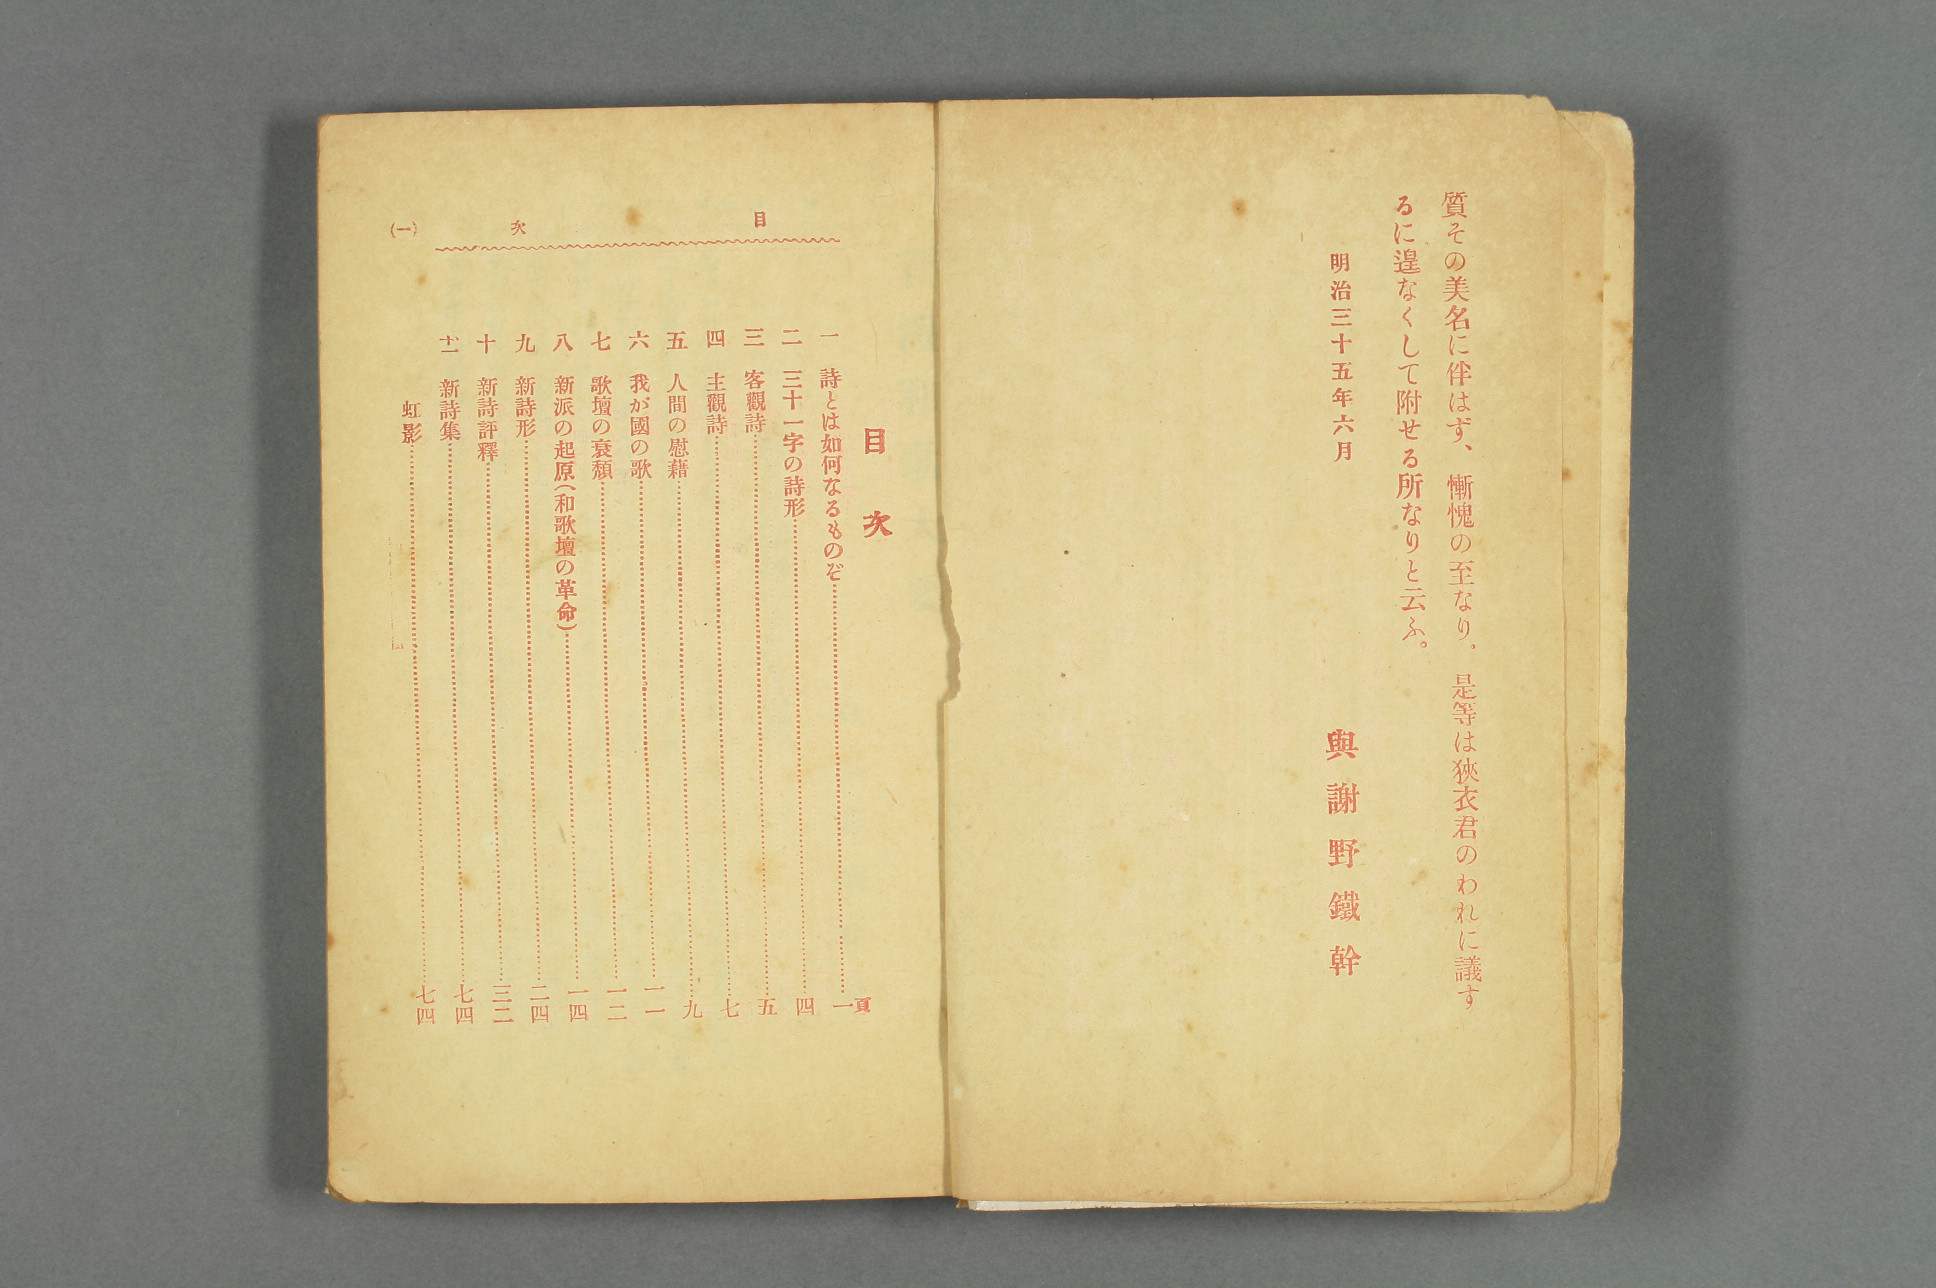 質その美名に伴はず、慚愧の至なり。是等は狹衣君のわれに議す
るに遑なくして附せる所なりと云ふ。
明治三十五年六月
與謝野鐵幹
目次
(一)
目次
頁
一 詩とは如何なるものぞ……一
二 三十一字の詩形……四
三 客觀詩……五
四 主觀詩……七
五 人間の慰藉……九
六 我が國の歌……一一
七 歌壇の衰頽……一二
八 新派の起原(和歌壇の革命)……一四
九 新詩形……二四
十 新詩評釋……三二
十一 新詩集……七四
虹影……七四